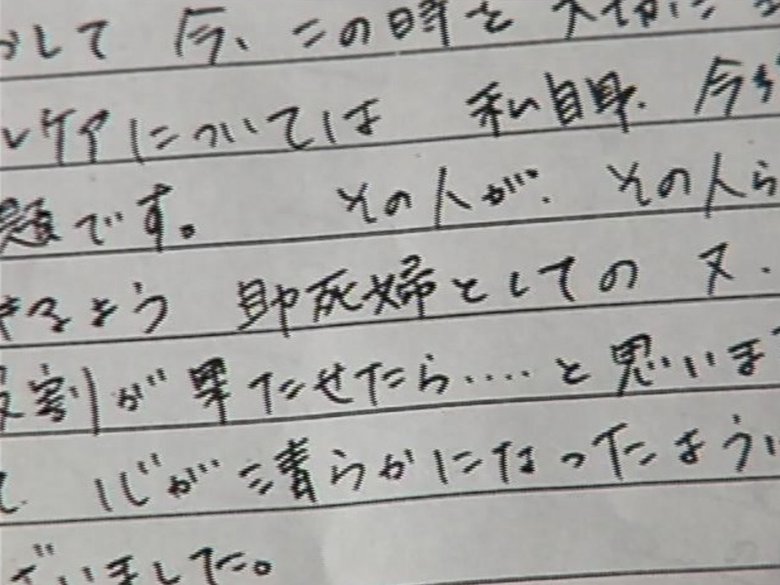 かして 今、この時を 大切に
ルケアについては 私自身、今
題です。 その人が、その人ら
きるよう 助死婦としての ヌ.
役割が果たせたら....と思いま
て 心が清らかになったような
ざいました。